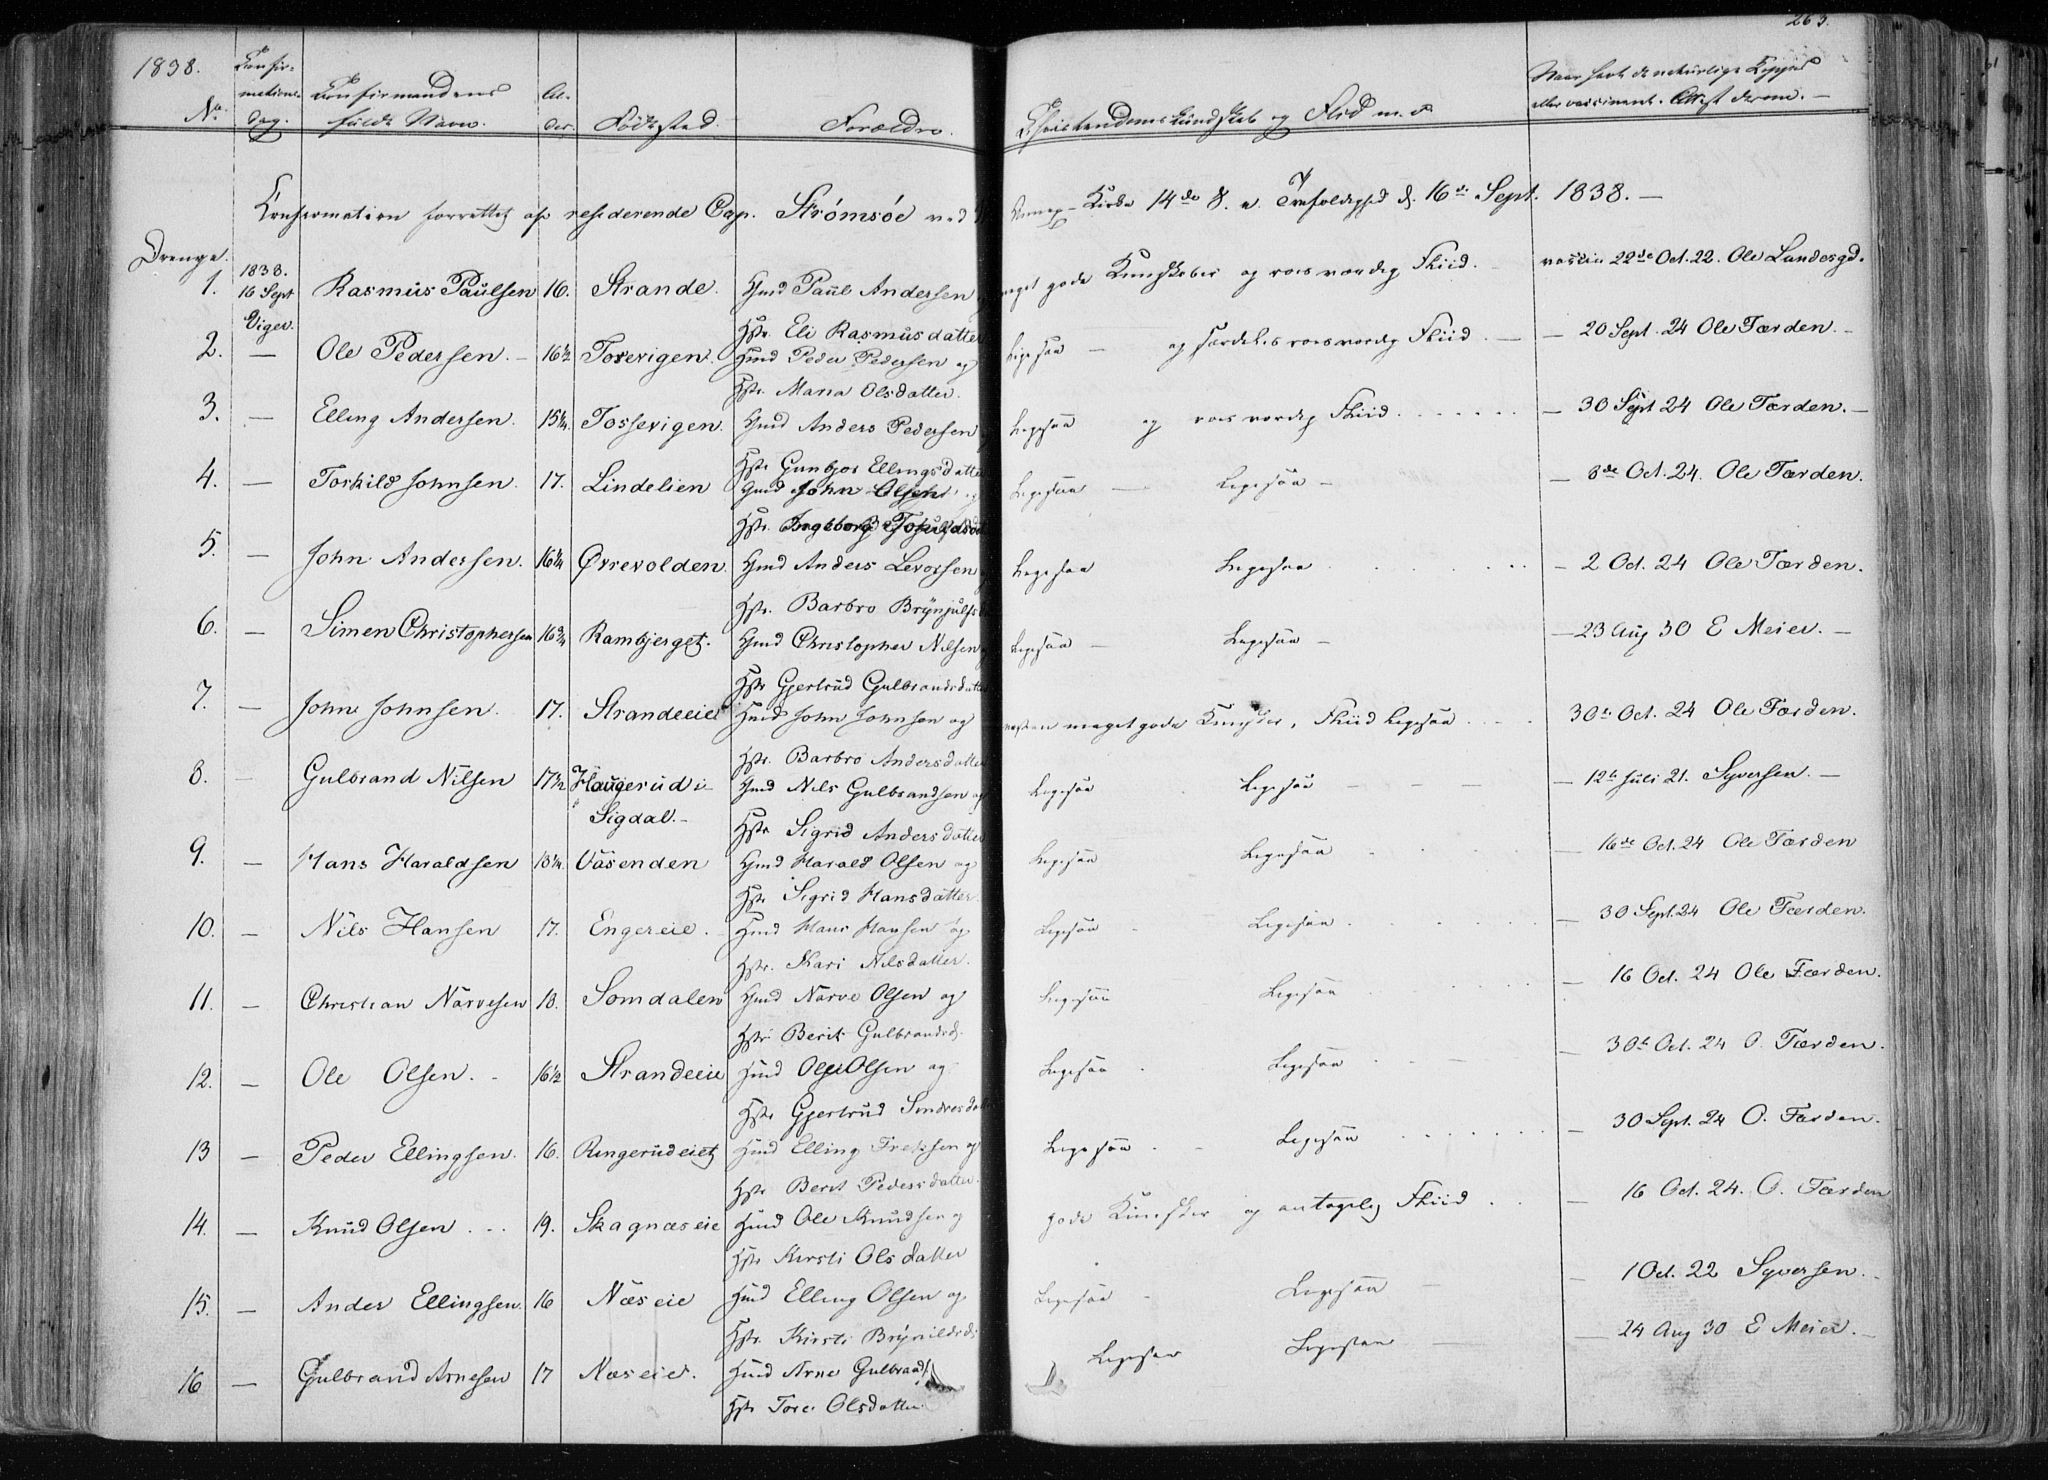 263.
1838.
No.
Confir-
mations
dag.
Confirmandens
fulde Navn.
Al-
der.
Fødested.
Forældre.
Christendoms Kundskab og Flid m. v.
Naar havt de naturlige Kopper
eller vaccineret. Attest derom. —
Confirmation forrettet af residerende Cap. Strømsøe ved Annex-Kirke 14de S. e. Trefoldighed d. 16de Sept. 1838. —
Drenge.
1. 1838. 16 Sept Viger. Rasmus Paulsen 16. Strande. Hmd Paul Andersen meget gode Kundskaber og roesværdig Fliid. — vaccin 22de Oct. 22. Ole Landesgd.
Hstr. Eli Rasmusdatter
2. — Ole Pedersen. — 16½ Toverigen. Hmd Peder Pedersen og Ligesaa — og særdeles roesværdig Fliid. — — 20 Sept. 24 Ole Færden. —
Hstr. Maria Olsdatter.
3. — Elling Andersen. 15¼. Tosserigen. Hmd Anders Pedersen Ligesaa og roesværdig Fliid. — 30 Sept 24 Ole Færden. —
Hstr Gunbjør Ellingsdatter
4. — Torkild Johnsen. 17. Lindelien Hmd John Olsen Ligesaa — Ligesaa — — 8de Oct. 24. Ole Færden.
Hstr. Ingeborg
5. — John Andersen. 16¼ Øvrevolden. Hmd Anders Levorsen Ligesaa Ligesaa — 2 Oct. 24 Ole Færden.
Hstr. Barbro Brynjulfsd
6. — Simen Christophersen 16¾ Rambjerget. Hmd Christopher Nilsen Ligesaa — Ligesaa — — 23 Aug 30 E Meier. —
Hstr Gjertrud Gulbrandsdatter
7. — John Johnsen. 17. Strandeeie Hmd John Johnsen og næsten meget gode Kundsker, Fliid Ligesaa 30te Oct. 24 Ole Færden.
Hstr. Barbro Andersdatter
8. — Gulbrand Nilsen 17½ Haugerud i Hmd Nils Gulbrandsen og Ligesaa Ligesaa — — 12te Juli 21. Syversen. —
Sigdal. — Hstr Sigrid Andersdatter
9. — Hans Haraldsen 18¼. Vasenden Hmd Harald Olsen og Ligesaa Ligesaa — 16de Oct. 24 Ole Færden
Hstr Sigrid Hansdatter
10. — Nils Hansen 17. Engereie. Hmd Hans Hansen og Ligesaa Ligesaa — 30 Sept. 24 Ole Færden.
Hstr. Kari Nilsdatter.
11. — Christian Narvesen 18. Somdalen Hmd Narve Olsen og Ligesaa Ligesaa — 16 Oct. 24 Ole Færden.
Hstr Berit Gulbrandsd.
12. — Ole Olsen. 16½ Strandeeie Hmd Ole Olsen og Ligesaa Ligesaa — 30te Oct. 24 O. Færden.
Hstr Gjertrud
13 — Peder Ellingsen. 16. Ringerudeiet Hmd Elling og Ligesaa Ligesaa — 30 Sept. 24 O. Færden.
Hstr Berit Pedersdatter.
14. — Knud Olsen 19. Skagnæseie Hmd Ole Knudsen og gode Kundsker og antagelig Fliid — 16 Oct. 24. O. Færden
Hstr Kirsti Olsdatter
15. — Ander Ellingsen 16 Næseie Hmd Elling Olsen og Ligesaa Ligesaa — 1 Oct. 22 Syversen.
Hstr. Kirsti Brynildsd:
16 — Gulbrand Arnesen 17 Næseie. Hmd Arne Gulbrands. Ligesaa Ligesaa — 24 Aug 30 E Meier. —
Hstr Tore Olsdatter